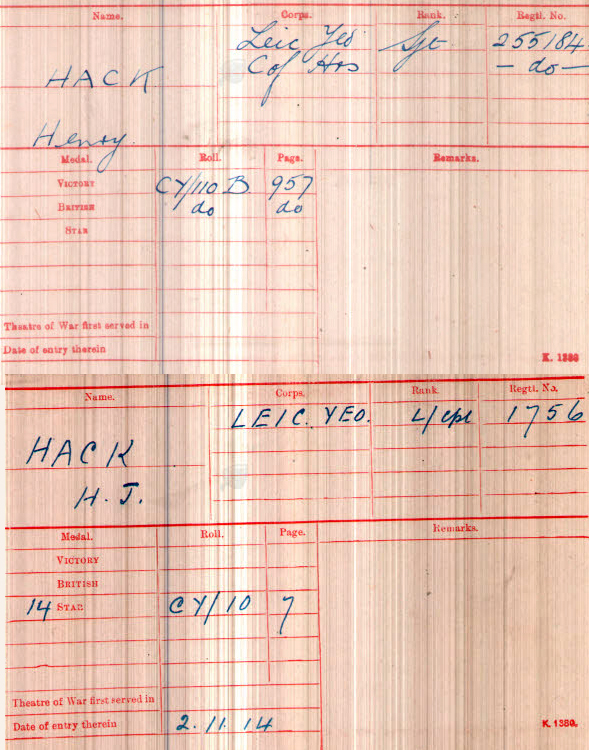 Name. Corps. Rank. Regtl. No.
Leic Yeo Sjt 255184
C of Hrs — do —
HACK
Henry
Medal. Roll. Page. Remarks.
VICTORY CY/110 B 957
BRITISH do do
STAR
Theatre of War first served in
Date of entry therein
K. 1380
Name. Corps. Rank. Regtl. No.
LEIC. YEO. L/cpl 1756
HACK
H. J.
Medal. Roll. Page. Remarks.
VICTORY
BRITISH
14 STAR CY/10 7
Theatre of War first served in
Date of entry therein 2.11.14
K. 1380.